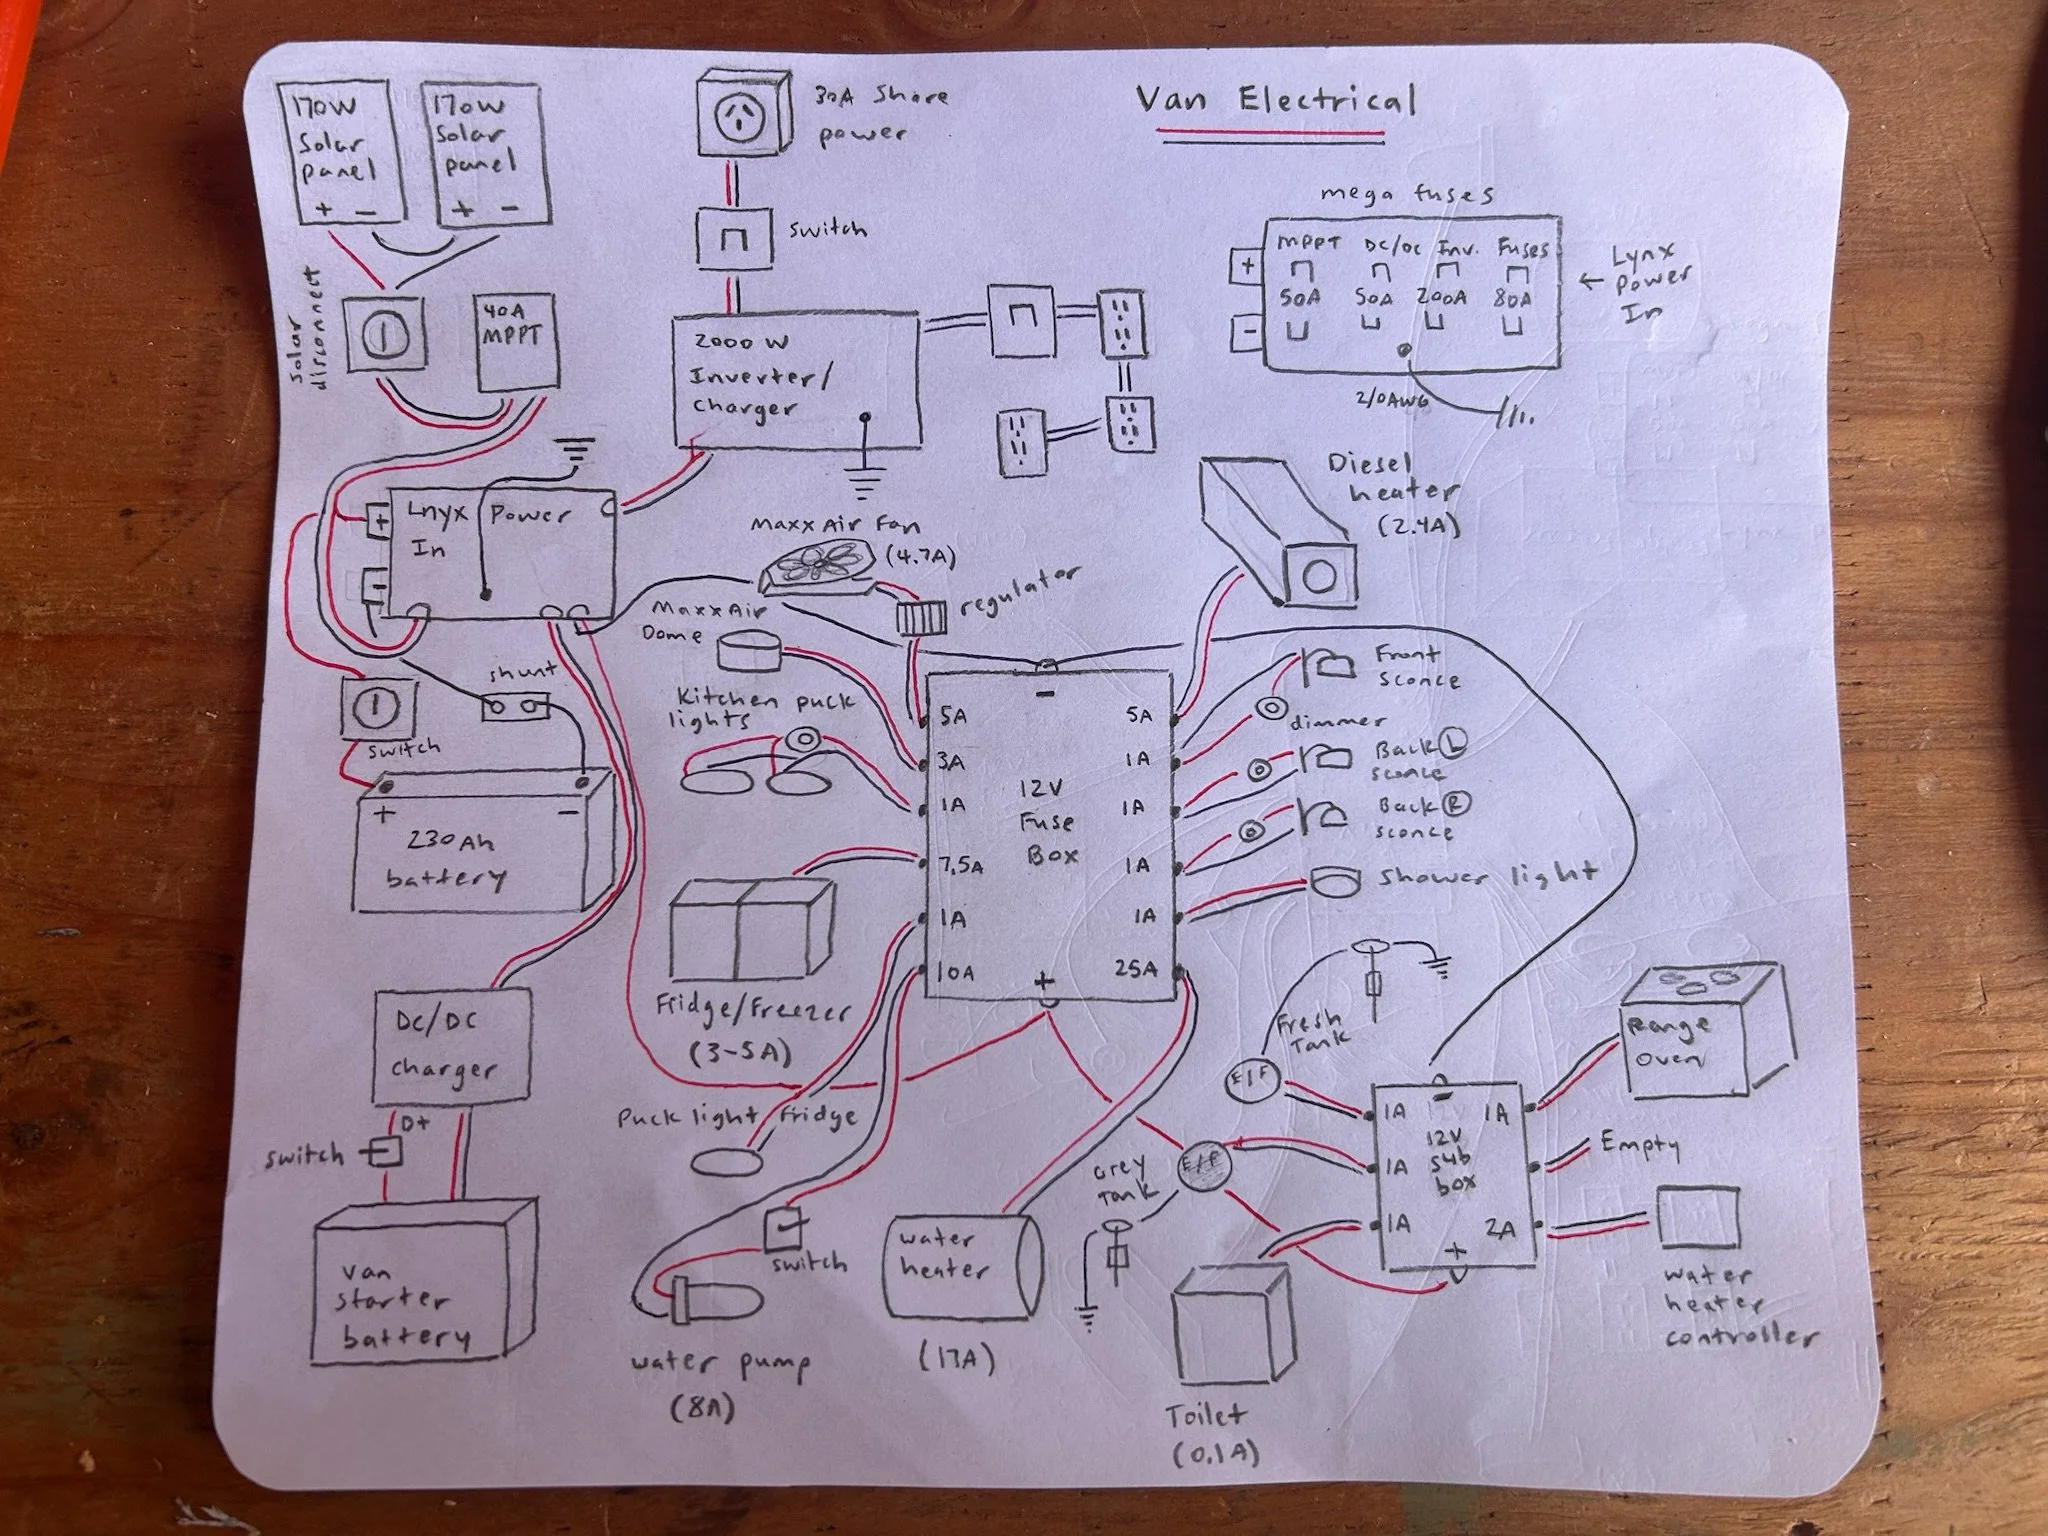 Van Electrical
170W
Solar
panel
+ −
170W
Solar
panel
+ −
Solar
disconnect
40A
MPPT
30A Shore
power
switch
2000 W
Inverter/
charger
mega fuses
MPPT DC/DC Inv. Fuses
50A 50A 200A 80A
+
−
2/0AWG
← Lynx
Power
In
Lnyx Power
In
+
−
shunt
switch
+ −
230Ah
battery
DC/DC
charger
D+
switch
van
starter
battery
MaxxAir Fan
(4.7A)
regulator
MaxxAir
Dome
Kitchen puck
lights
Fridge/Freezer
(3-5A)
Puck light fridge
switch
water pump
(8A)
water
heater
(17A)
−
12V
Fuse
Box
+
5A
3A
1A
7.5A
1A
10A
5A
1A
1A
1A
1A
25A
Diesel
heater
(2.4A)
Front
sconce
dimmer
Back L
sconce
Back R
sconce
Shower light
Fresh
Tank
E/F
Grey
Tank
E/F
Toilet
(0.1A)
−
12V
sub
box
+
1A
1A
1A
1A
2A
Range
Oven
Empty
water
heater
controller